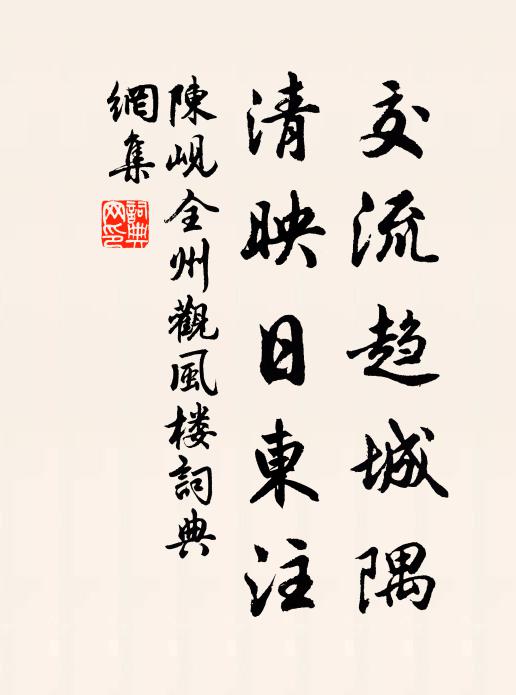 交流趋城隅
清映日東注
陳峴全州觀風楼詞典
網集
詞典网印